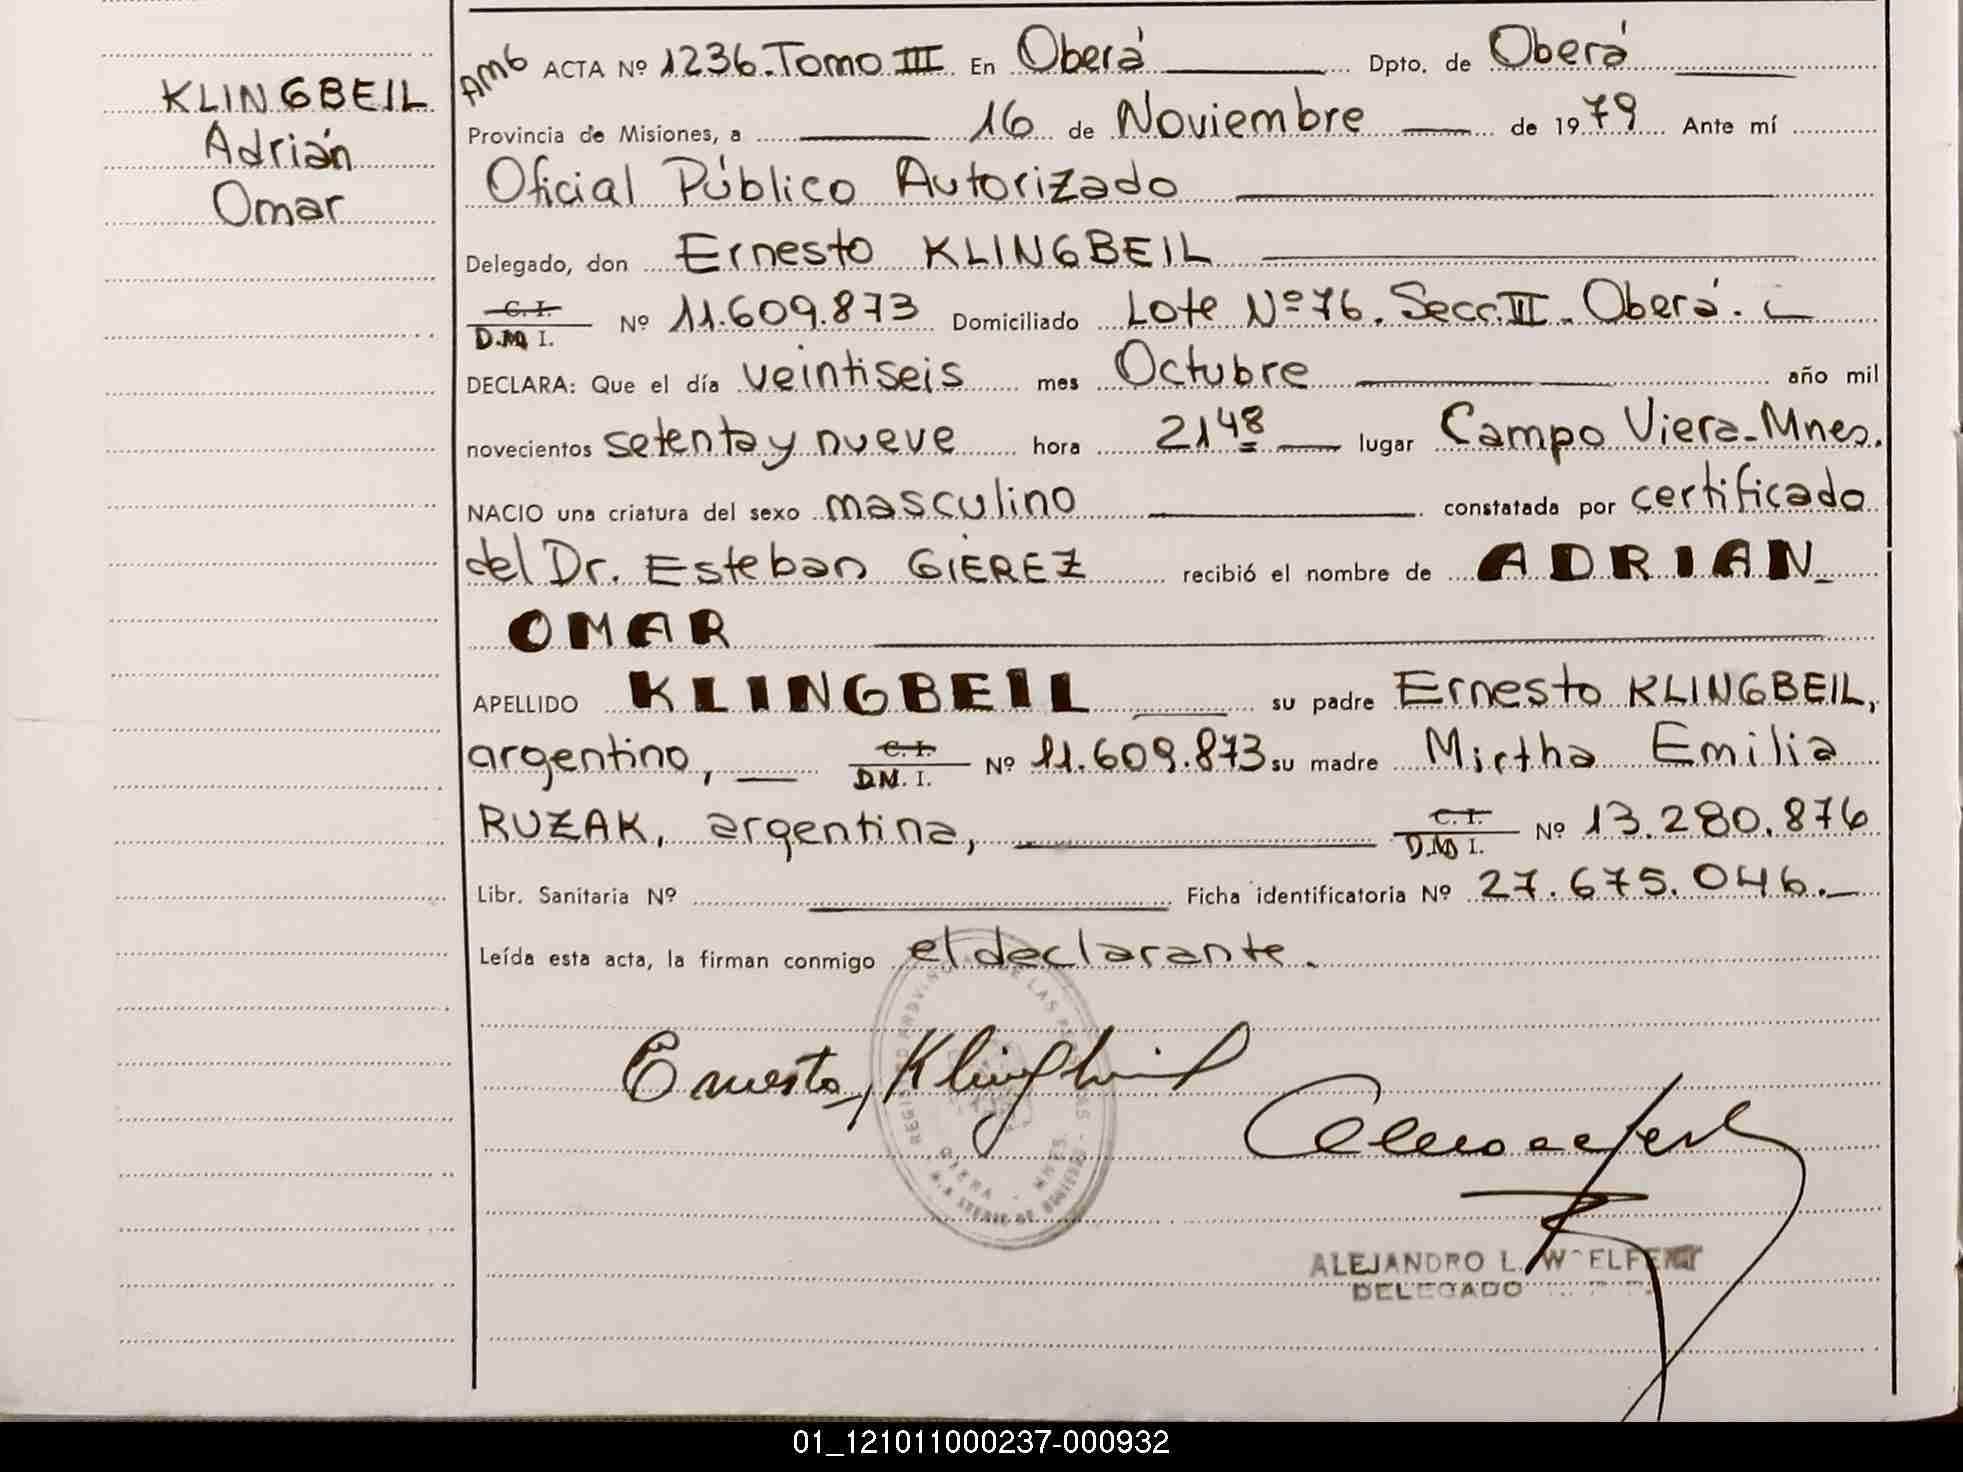 KLINGBEIL
Adrián
Omar
AMB ACTA Nº 1236. Tomo III En Oberá Dpto. de Oberá
Provincia de Misiones, a 16 de Noviembre de 1979 Ante mí
Oficial Público Autorizado
Delegado, don Ernesto KLINGBEIL
C. I.
D.N.I. Nº 11.609.873 Domiciliado Lote Nº 76. Secc. III. Oberá.
DECLARA: Que el día veintiseis mes Octubre año mil
novecientos setenta y nueve hora 21 48 lugar Campo Viera - Mnes.
NACIO una criatura del sexo masculino constatada por certificado
del Dr. Esteban GIEREZ recibió el nombre de ADRIAN
OMAR
APELLIDO KLINGBEIL su padre Ernesto KLINGBEIL,
argentino, C. I. D.N.I. Nº 11.609.873 su madre Mirtha Emilia
RUZAK, argentina, C. I. D.N.I. Nº 13.280.876
Libr. Sanitaria Nº Ficha identificatoria Nº 27.675.046.
Leída esta acta, la firman conmigo el declarante.
Ernesto Klingbeil
REGISTRO PROVINCIAL DE LAS PERSONAS
OBERA - MNES.
ALEJANDRO L.
DELEGADO
01_121011000237-000932